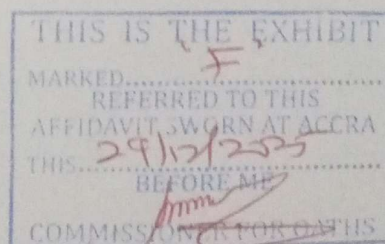 THIS IS THE EXHIBIT
MARKED..........F..........
REFERRED TO THIS
AFFIDAVIT SWORN AT ACCRA
THIS 29/12/2025
BEFORE ME
COMMISSIONER FOR OATHS